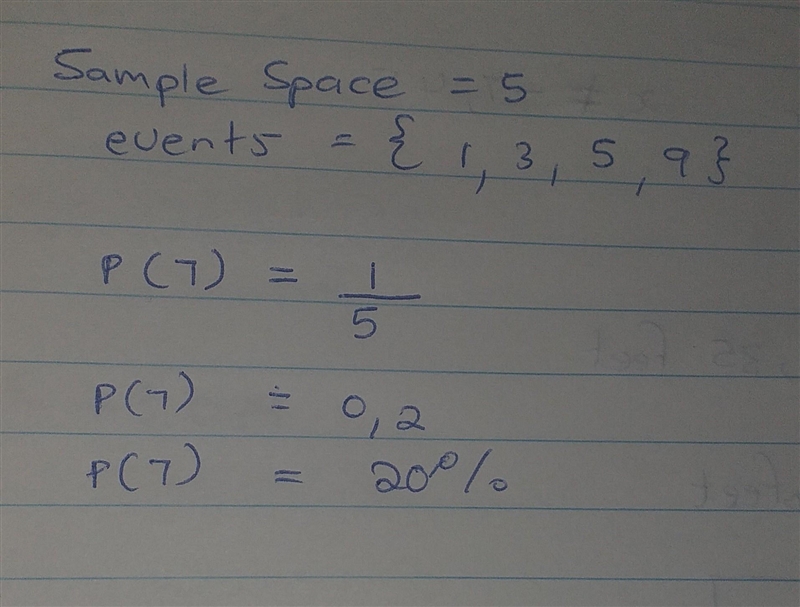 Sample Space = 5
events = { 1, 3, 5, 9}
P(7) = 1/5
P(7) = 0,2
P(7) = 20%